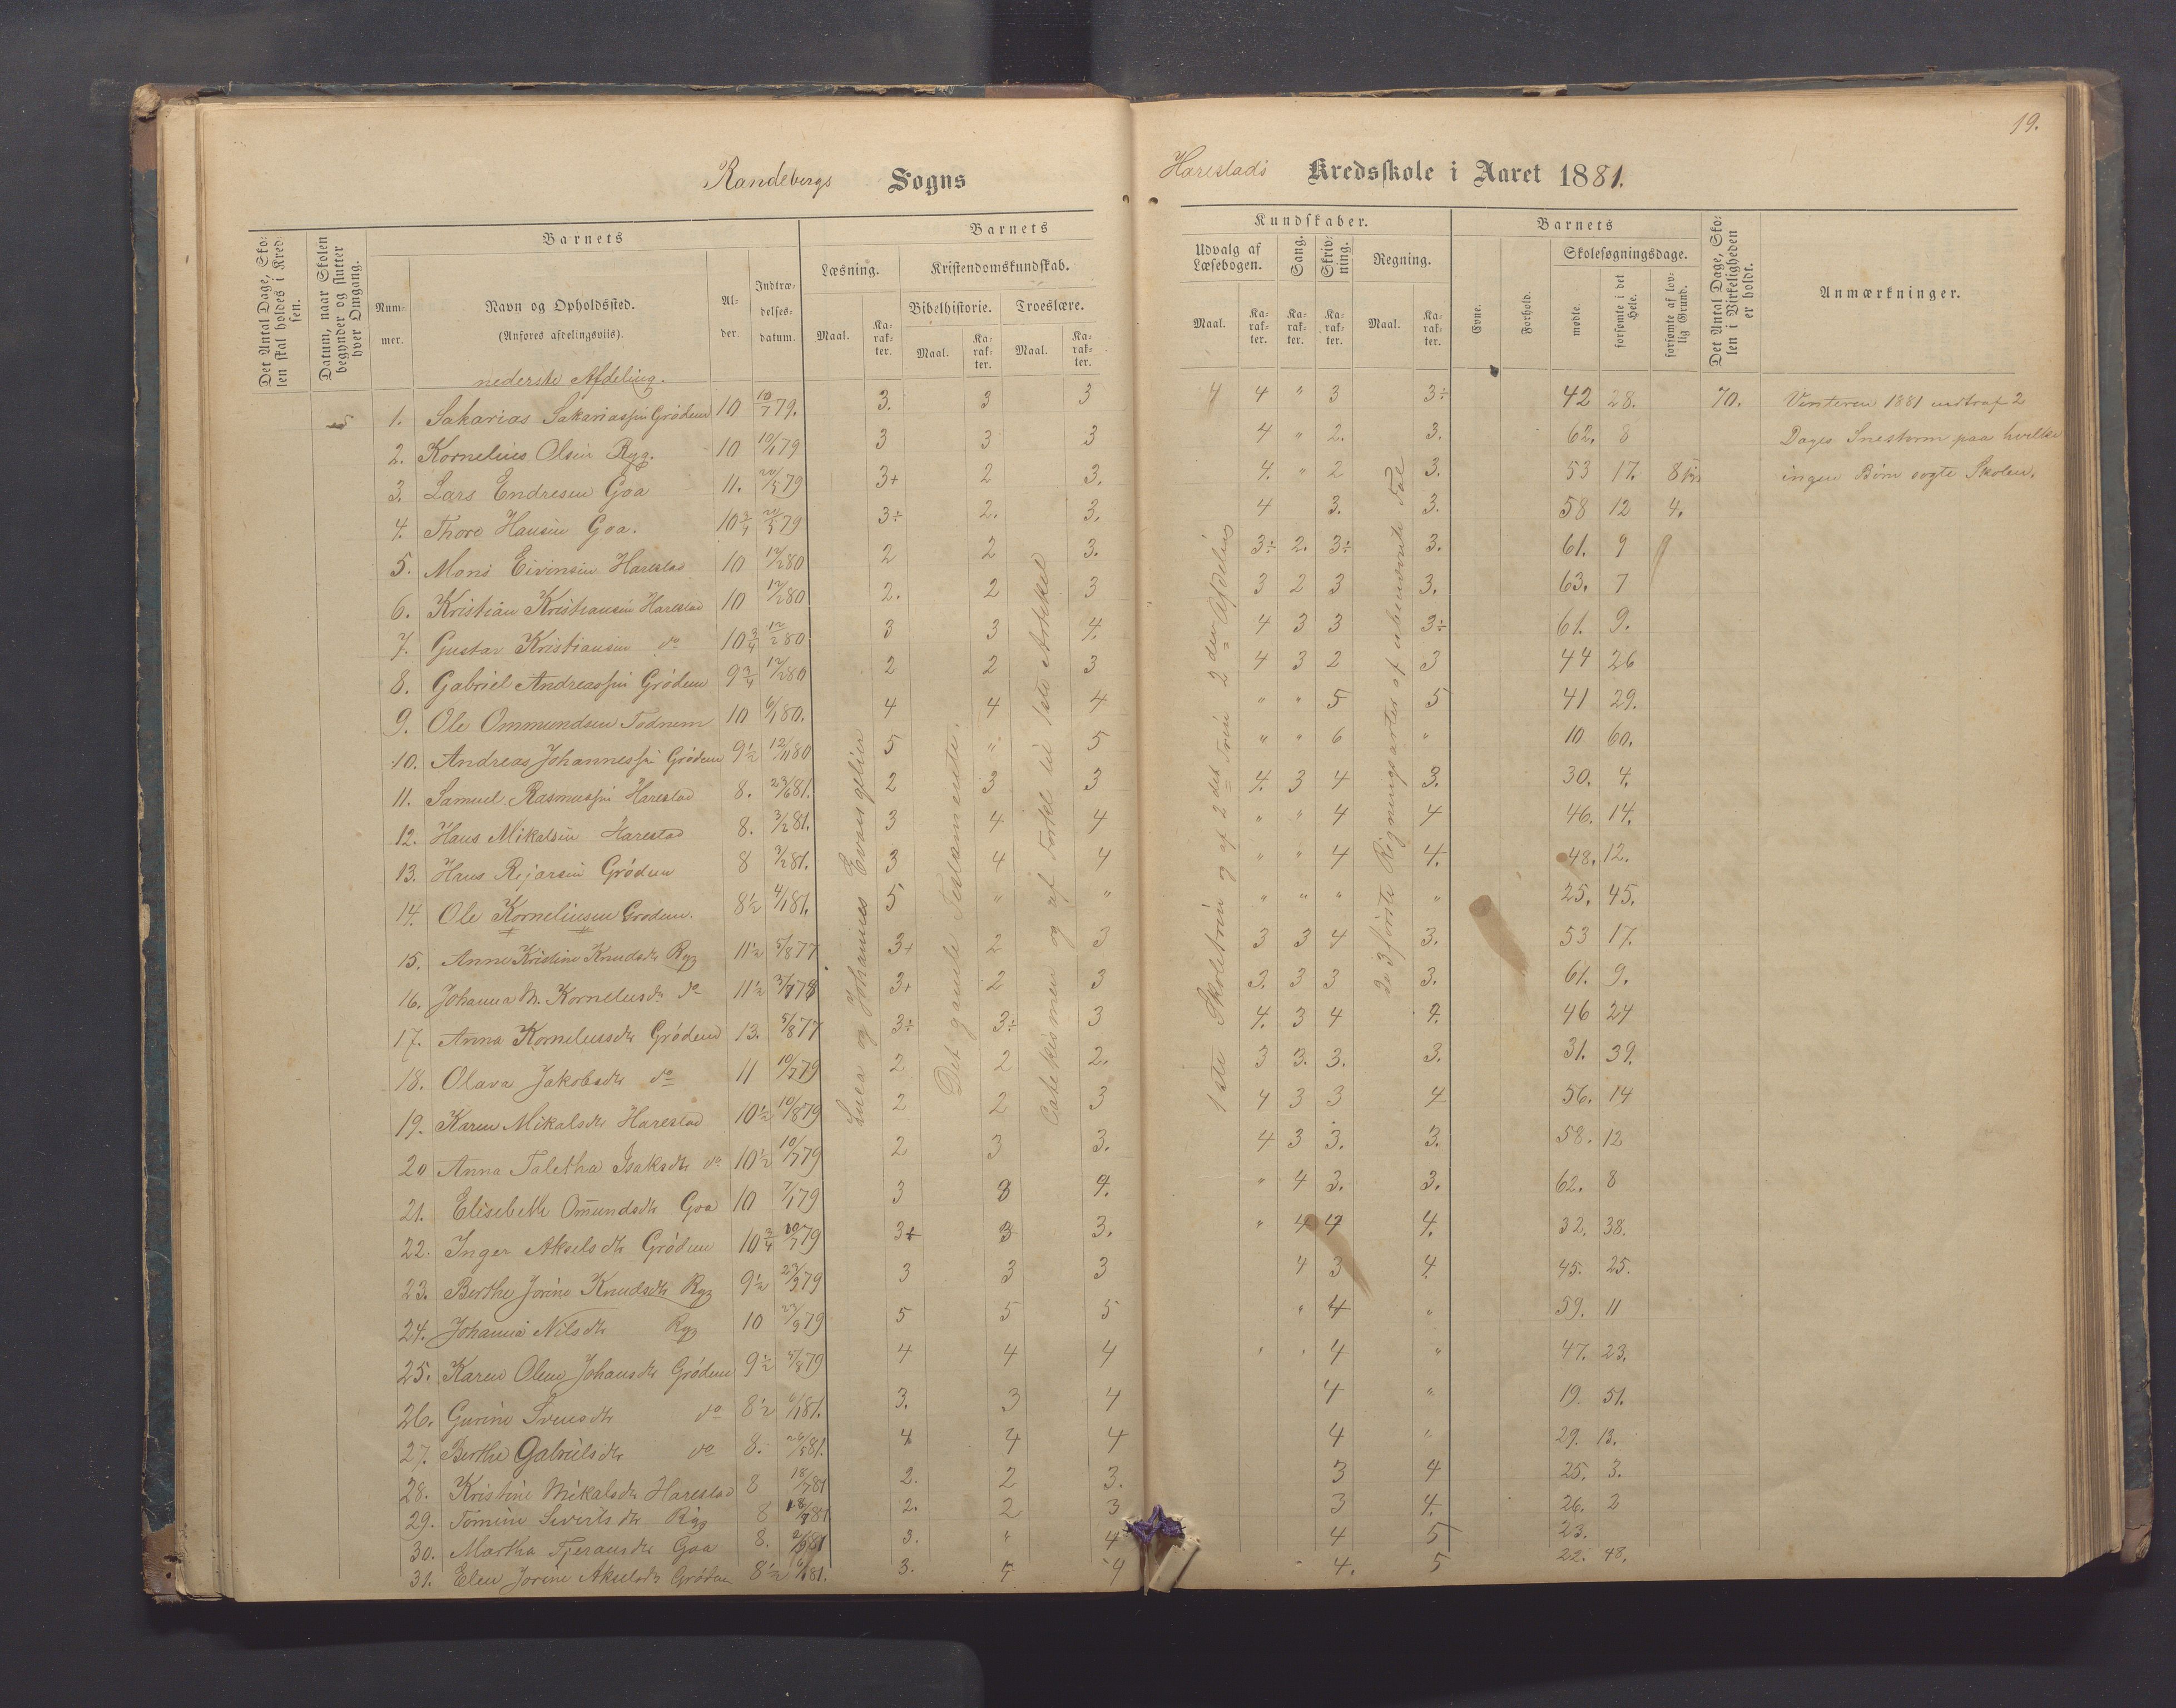 19.
Randebergs Sogns Harestads Kredsskole i Aaret 1881.
Det Antal Dage, Skolen skal holdes i Kredsen.
Datum, naar Skolen begynder og slutter hver Omgang.
Barnets
Nummer.
Navn og Opholdssted.
(Anføres afdelingsviis).
Alder.
Indtrædelsesdatum.
Barnets Kundskaber.
Læsning.
Maal. Karakter.
Kristendomskundskab.
Bibelhistorie. Troeslære.
Maal. Karakter. Maal. Karakter.
Udvalg af Læsebogen.
Maal. Karakter.
Sang. Karakter.
Skrivning. Karakter.
Regning.
Maal. Karakter.
Barnets
Evne. Forhold.
Skolesøgningsdage.
mødte. forsømte i det Hele. forsømte af lovlig Grund.
Det Antal Dage, Skolen i Virkeligheden er holdt.
Anmærkninger.
nederste Afdeling.
1. Sakarias Sakariassen Grödem 10 10/7 79. 3. 3 3 4 4 " 3 3÷ 42 28. 70. Vinteren 1881 indtraf 2
2. Kornelius Olsen Ryg. 10 10/1 79 3 3 3 4 " 2. 3. 62. 8 Dages Snestorm paa hvilke
3. Lars Endresen Goa 11. 20/5 79 3+ 2 3. 4. " 2 3. 53 17. 8 ingen Börn sögte Skolen.
4. Thore Hansen Goa. 10 3/4 20/5 79 3÷ 2. 3. 4 3. 3. 58 12 4.
5. Mons Eivinsen Harestad 10 12/2 80 2 2 3. 3÷ 2. 3÷ 3. 61. 9 9
6. Kristian Kristiansen Harestad 10 12/2 80 2. 2 3 3 2 3 3. 63. 7
7. Gustav Kristiansen do 10 3/4 12/2 80 3 3 4. 4 3 3 3÷ 61. 9.
8. Gabriel Andreassen Grödem 9 3/4 12/2 80 2 2 3 4 3 2 3 44 26
9. Ole Ommundsen Todnem 10 6/1 80. 4 4 4 " " 5 5 41 29.
10. Andreas Johannessen Grödem 9 1/2 12/11 80 5 " 5 " " 6 " 10 60.
11. Samuel Rasmussen Harestad 8. 23/6 81. 2 3 3 4. 3 4 3. 30. 4.
12. Hans Mikalsen Harestad 8. 3/2 81. 3 4 4 " " 4 4 46. 14.
13. Hans Rejarsen Grödem 8 3/2 81. 3 4 4 " " 4 4. 48. 12.
14. Ole Korneliusen Grodem. 8 1/2 4/1 81. 5 " " " " " " 25. 45.
15. Anne Kristine Knudsdtr Ryg 11 1/2 5/8 77 3+ 2 3 3 3 4 3. 53 17.
16. Johanna M. Kornelusdr do 11 1/2 3/7 78 3+ 2 3 3. 3 3 3. 61. 9.
17. Anna Kornelusdtr Grödem 13. 5/8 77 3÷ 3÷ 3 4. 3 4 4. 46 24
18. Olava Jakobsdtr do 11 10/7 79 2 2 2. 3 3. 3. 3. 31. 39.
19. Karen Mikalsdtr Harestad 10 1/2 10/8 79 2 2 3 4 3 3 4 56. 14
20 Anna Taletha Isaksdtr do 10 1/2 10/7 79 2 3 3. 4 3 3. 3. 58. 12
21. Elisebeth Omundsdtr Goa 10 7/1 79 3 3 4. " 4 3. 3. 62. 8
22. Inger Akselsdtr Grödem 10 3/4 10/7 79 3+ 3 3. " 4 4 4. 32. 38.
23. Berthe Jorine Knudsdtr Ryg 9 1/2 23/9 79 3 3 3 4 3 4. 45. 25.
24. Johanna Nilsdtr Ryg 10 23/9 79 5 5 5 " 4 " 59. 11
25. Karen Oline Johansdtr Grödem 9 1/2 5/8 79 4 4 4 " " 4 " 47. 23.
26. Gurine Svensdtr do 8 1/2 6/1 81. 3. 3 4 4 " 19. 51.
27. Berthe Gabrielsdtr do 8. 20/5 81. 4 4 4 4 " 29. 13.
28. Kristine Mikalsdtr Harestad 8 18/7 81 2. 2 3. 3 4 25. 3.
29. Tomine Sivertsdtr Ryg 8 18/7 81 2. 2 3 3 4. 26. 2
30. Martha Tjeransdtr Goa 8. 3. " 4 4 5 23.
31. Elen Jorine Akselsdtr Gröden 8 1/2 6/1 81. 3. 4 4 4. 5 22. 48.
Luca og Johannes Evangelier
Det gamle Testamente.
Catekismen og af Forkl til 1ste Artikel
1ste Skoletrin og af 2det Trin 2den Afdeling
de 3 förste Regningsarter af ubenævnte Tal